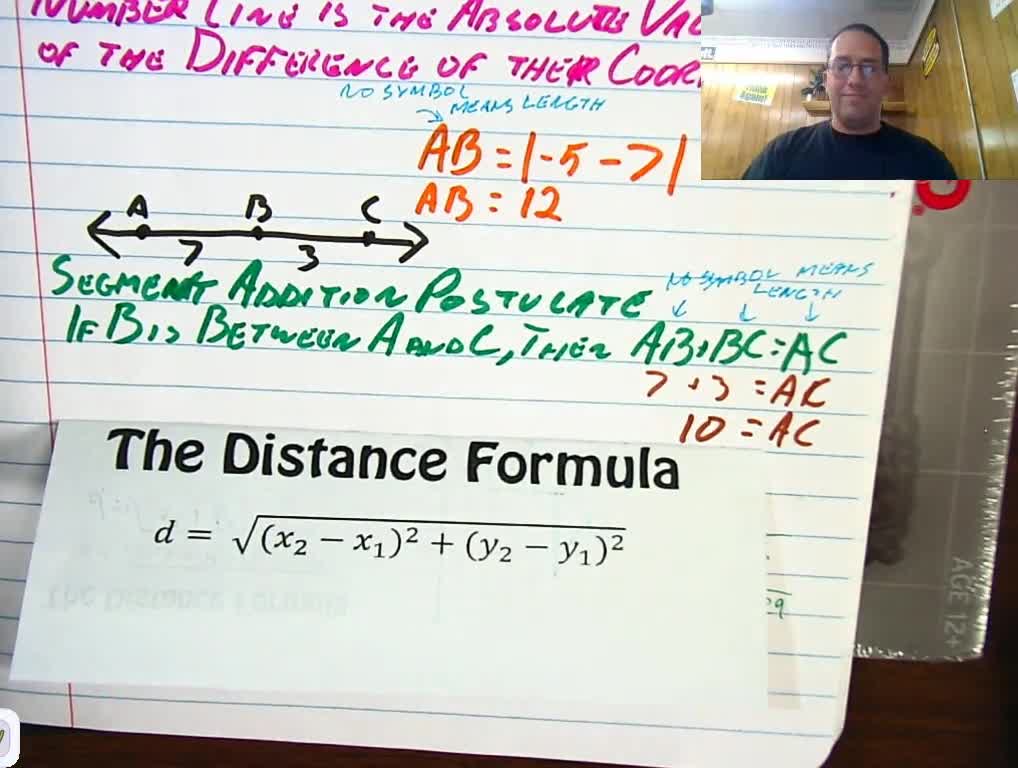 NUMBER LINE IS THE ABSOLUTE VAL
OF THE DIFFERENCE OF THEIR COOR
NO SYMBOL
MEANS LENGTH
AB = |-5 - 7|
AB = 12
A B C
7 3
SEGMENT ADDITION POSTULATE
NO SYMBOL MEANS
LENGTH
IF B IS BETWEEN A AND C, THEN AB + BC = AC
7 + 3 = AC
10 = AC
The Distance Formula
d = √(x₂ − x₁)² + (y₂ − y₁)²
AGE 12+